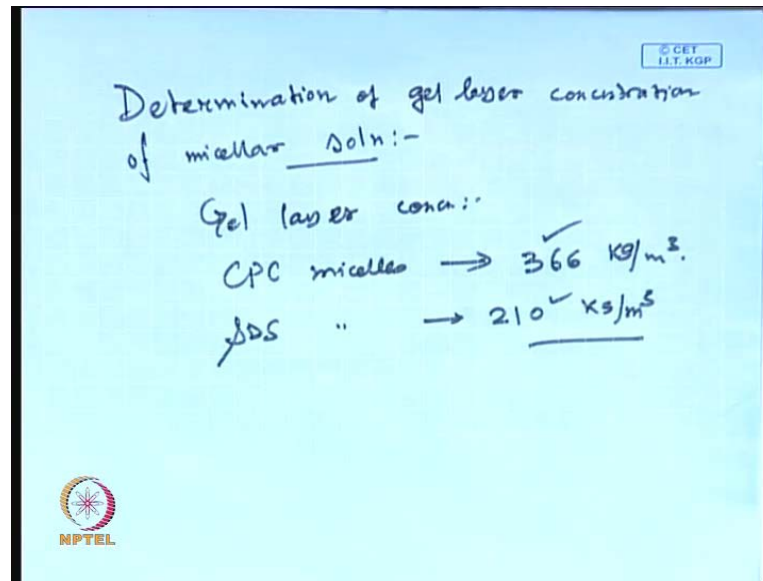 © CET
I.I.T. KGP
Determination of gel layer concentration
of micellar soln:-
Gel layer concn:-
CPC micelles → 366 kg/m³.
SDS " → 210 kg/m³
NPTEL